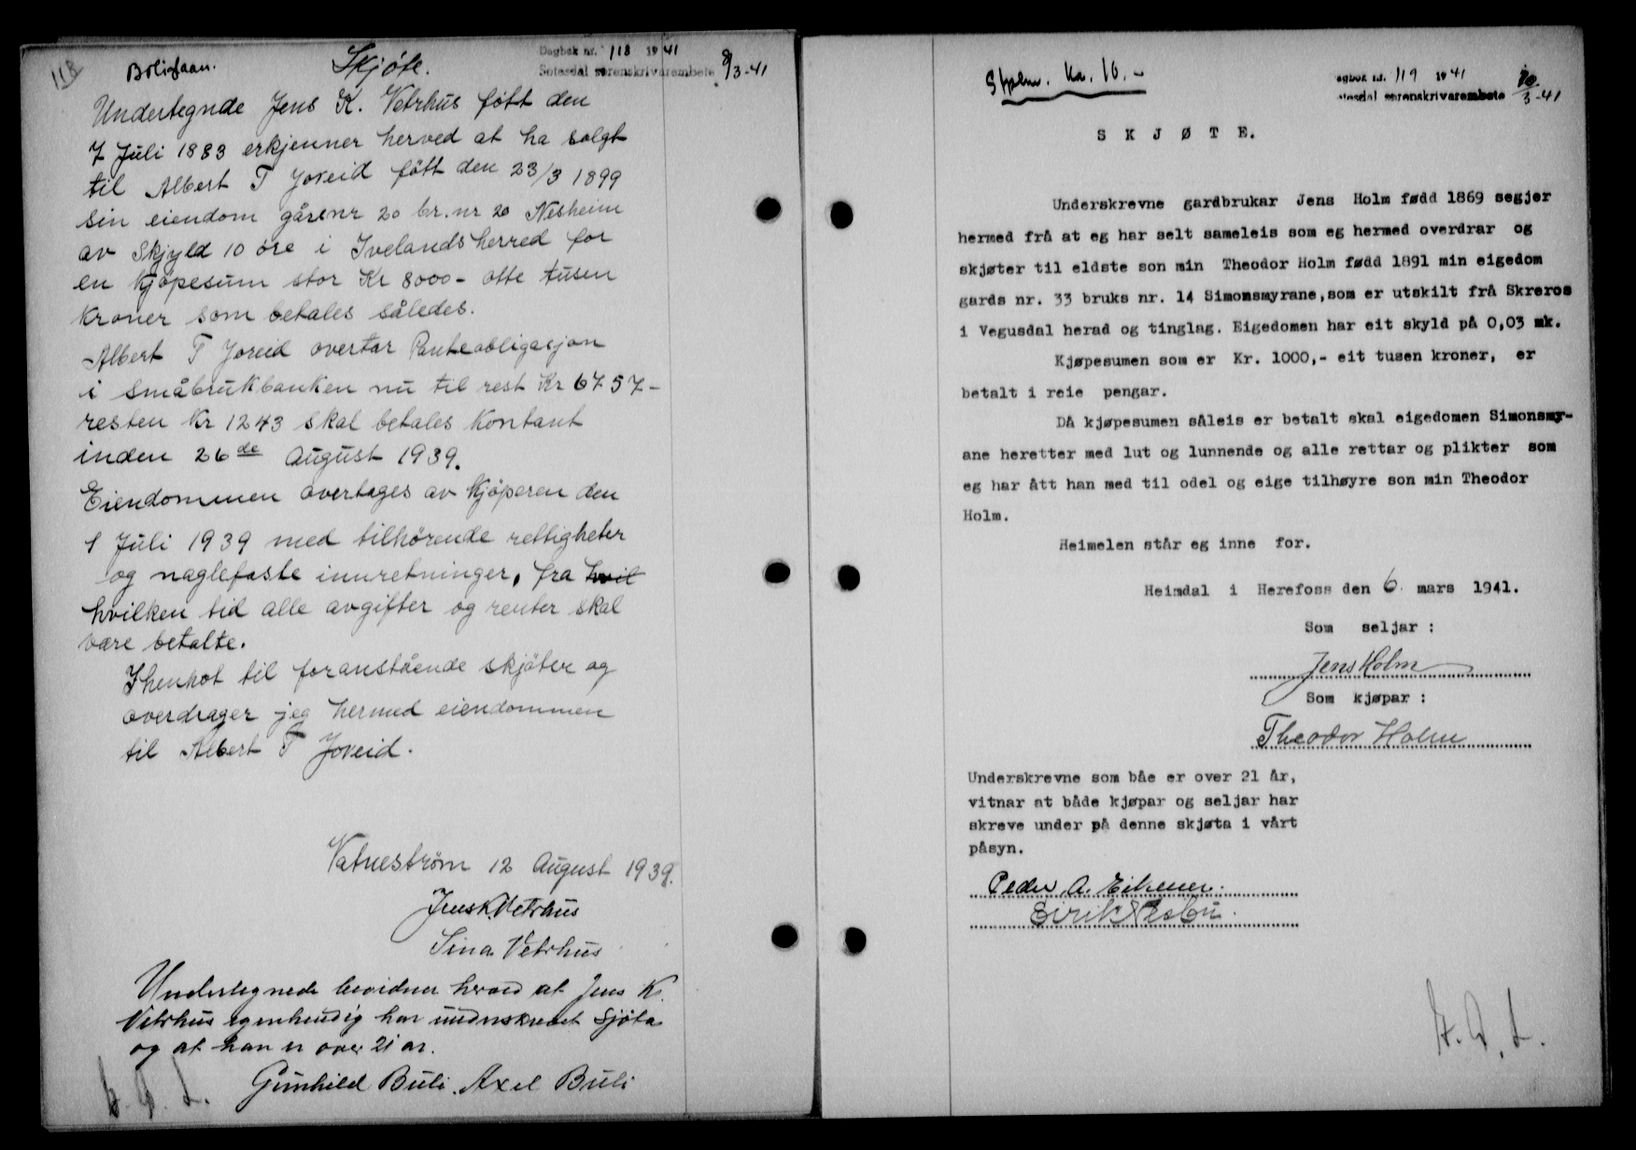 118
Boligfaan.
Skjøte.
Dagbok nr. 118 1941
Setesdal sørenskrivarembete 8/3-41
Undertegnde Jens K. Vetrhus føtt den
7 Juli 1883 erkjenner herved at ha solgt
til Albert T Joreid føtt den 23/3 1899
sin eiendom gårsnr 20 br.nr 20 Nesheim
av Skjyld 10 öre i Ivelands herred for
en kjöpesum stor Kr 8000- otte tusen
kroner som betales således.
Albert T Joreid overtar Panteobligasjon
i småbrukbanken nu til rest Kr 6757-
resten Kr 1243 skal betales Kontant
inden 26de August 1939.
Eiendommen overtages av kjöperen den
1 Juli 1939 med tilhörende rettigheter
og naglefaste innretninger, fra hvil
hvilken tid alle avgifter og renter skal
være betalte.
I henhot til foranstående skjöter og
overdrager jeg hermed eiendommen
til Albert T Joreid.
Vatneström 12 August 1939.
Jens K Vetrhus
Sina Vetrhus
Undertegnede bevidner herved at Jens K.
Vetrhus egenhendig har underskrevet Sjöta
og at han er over 21 ar.
Gunhild Buli. Axel Buli
Stplm. kr. 10.-
agbok nr. 119 1941
tesdal sørenskrivarembete 10/3-41
SKJØTE.
Underskrevne gardbrukar Jens Holm fødd 1869 segjer
hermed frå at eg har selt sameleis som eg hermed overdrar og
skjøter til eldste son min Theodor Holm fødd 1891 min eigedom
gards nr. 33 bruks nr. 14 Simonsmyrane, som er utskilt frå Skreros
i Vegusdal herad og tinglag. Eigedomen har eit skyld på 0,03 mk.
Kjøpesumen som er Kr. 1000,- eit tusen kroner, er
betalt i reie pengar.
Då kjøpesumen såleis er betalt skal eigedomen Simonsmy-
ane heretter med lut og lunnende og alle rettar og plikter som
eg har ått han med til odel og eige tilhøyre son min Theodor
Holm.
Heimelen står eg inne for.
Heimdal i Herefoss den 6. mars 1941.
Som seljar :
Jens Holm
Som kjøpar :
Theodor Holm
Underskrevne som båe er over 21 år,
vitnar at både kjøpar og seljar har
skreve under på denne skjøta i vårt
påsyn.
Peder A. Eikenes.